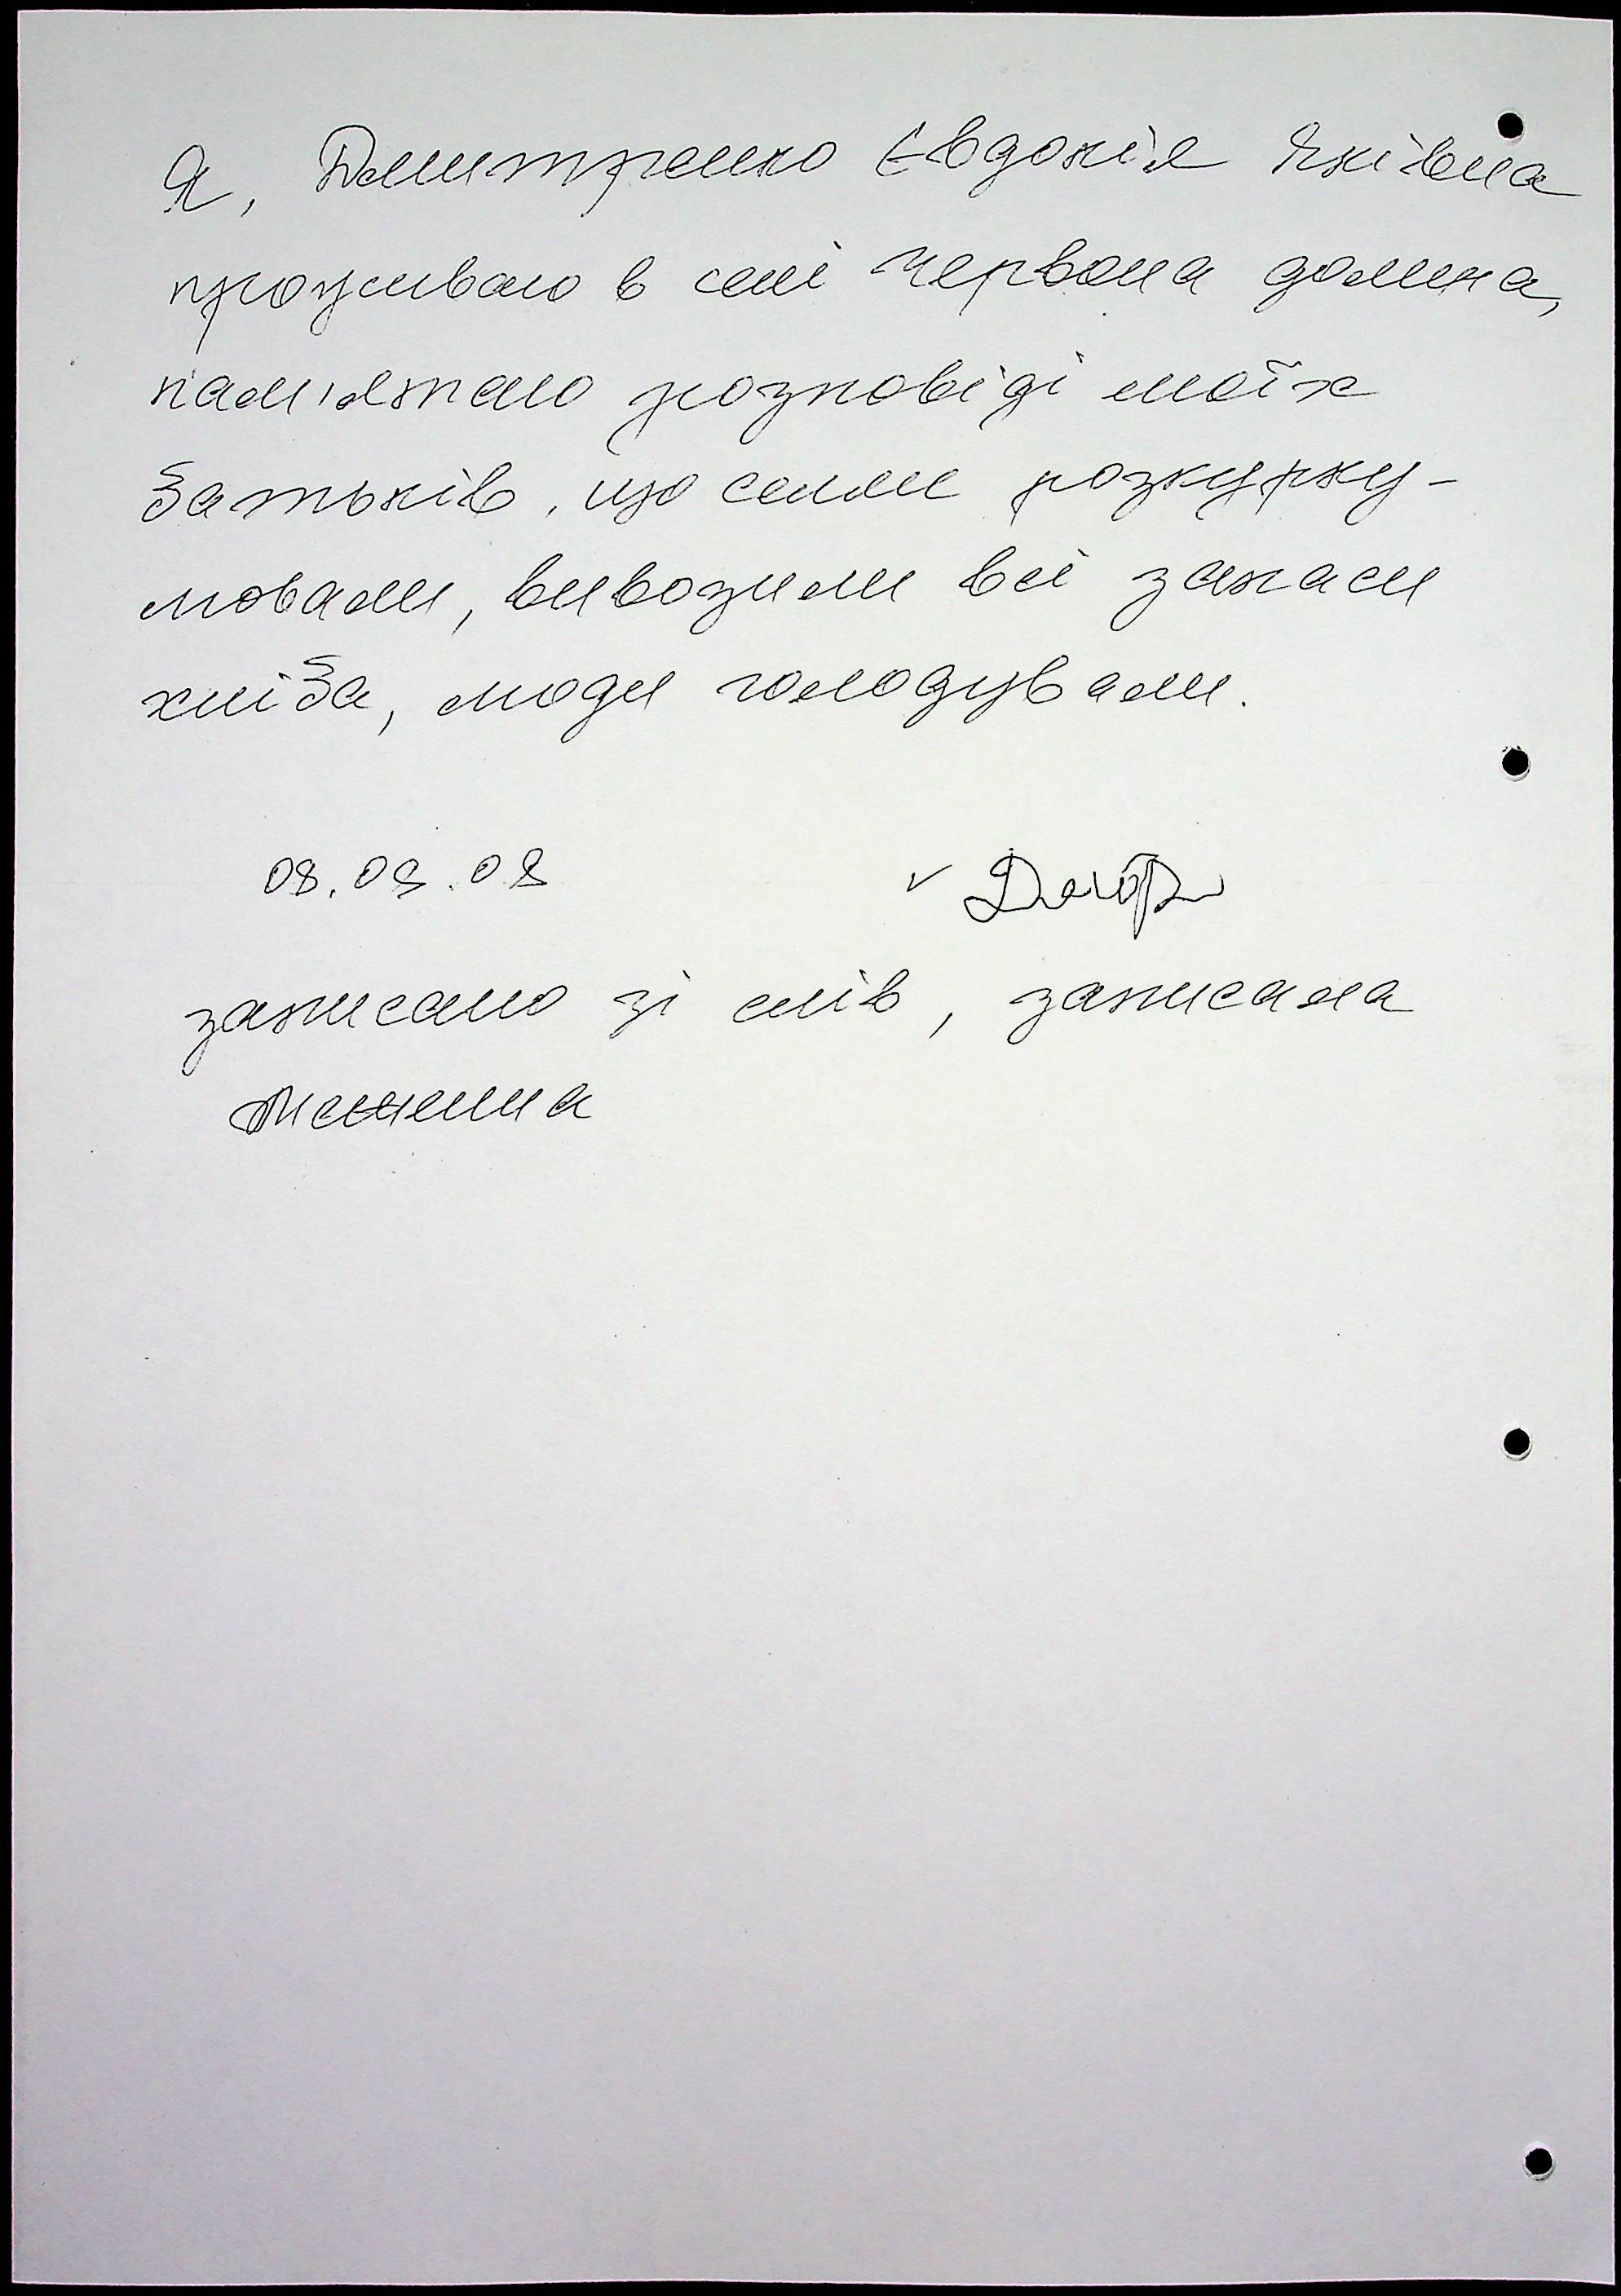 Я, Дмитренко Євдокія Яківна
проживаю в селі Червона долина,
пам'ятаю розповіді моїх
батьків, що селян розкурку-
лювали, вивозили всі запаси
хліба, люди голодували.
08.09.08
записано зі слів, записала